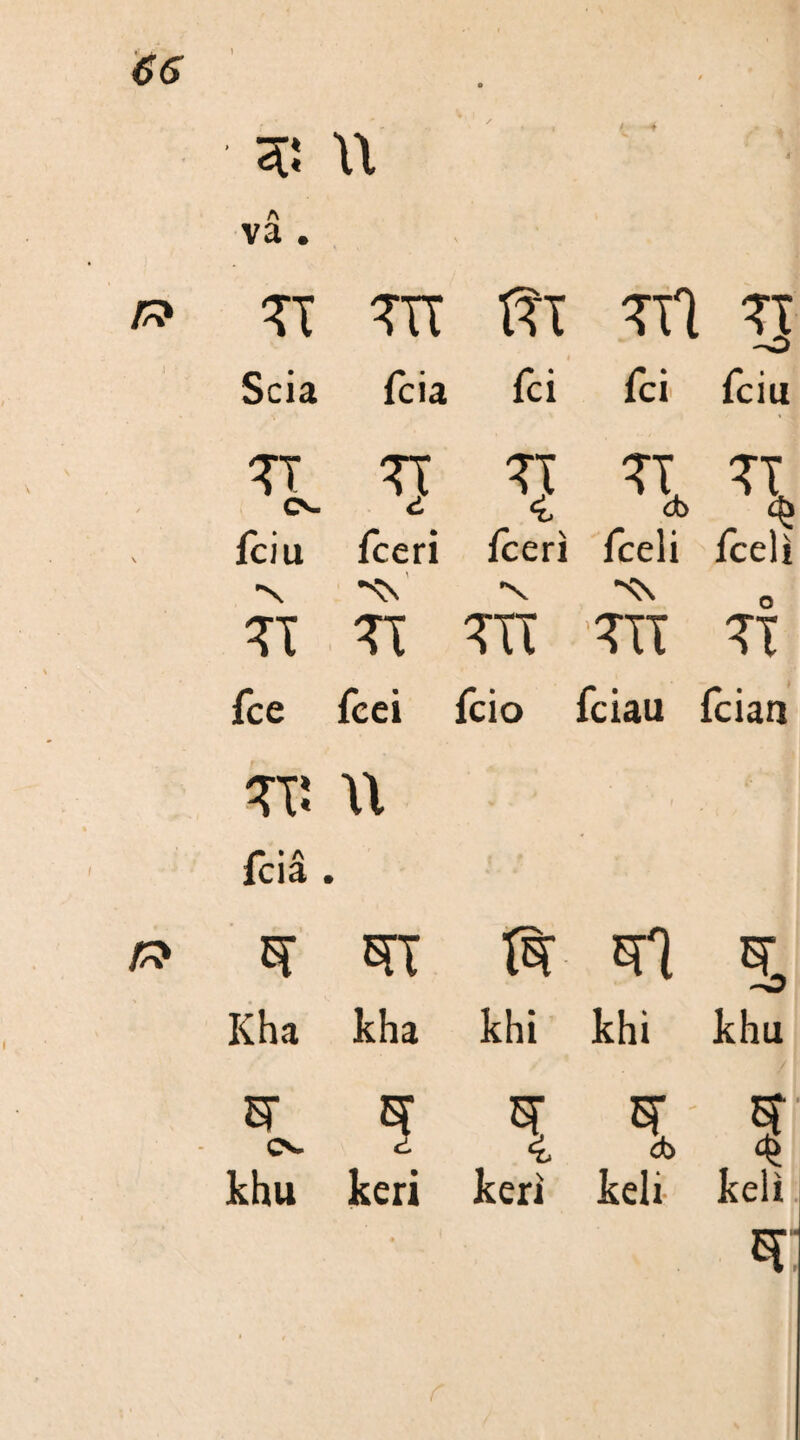 66
वः ॥
vâ .
श शा शि शी शु
Scia ſcia ſci ſci ſciu
शू शृ शॄ शॢ शॣ
ſciu ſceri ſcerì ſceli ſcelì
शे शै शो शौ शं
ſce ſcei ſcio ſciau ſcian
शः ॥
ſciâ .
ष षा षि षी षु
Kha kha khi khi khu
षू षृ षॄ षॢ षॣ
khu keri kerì keli kelì
ष